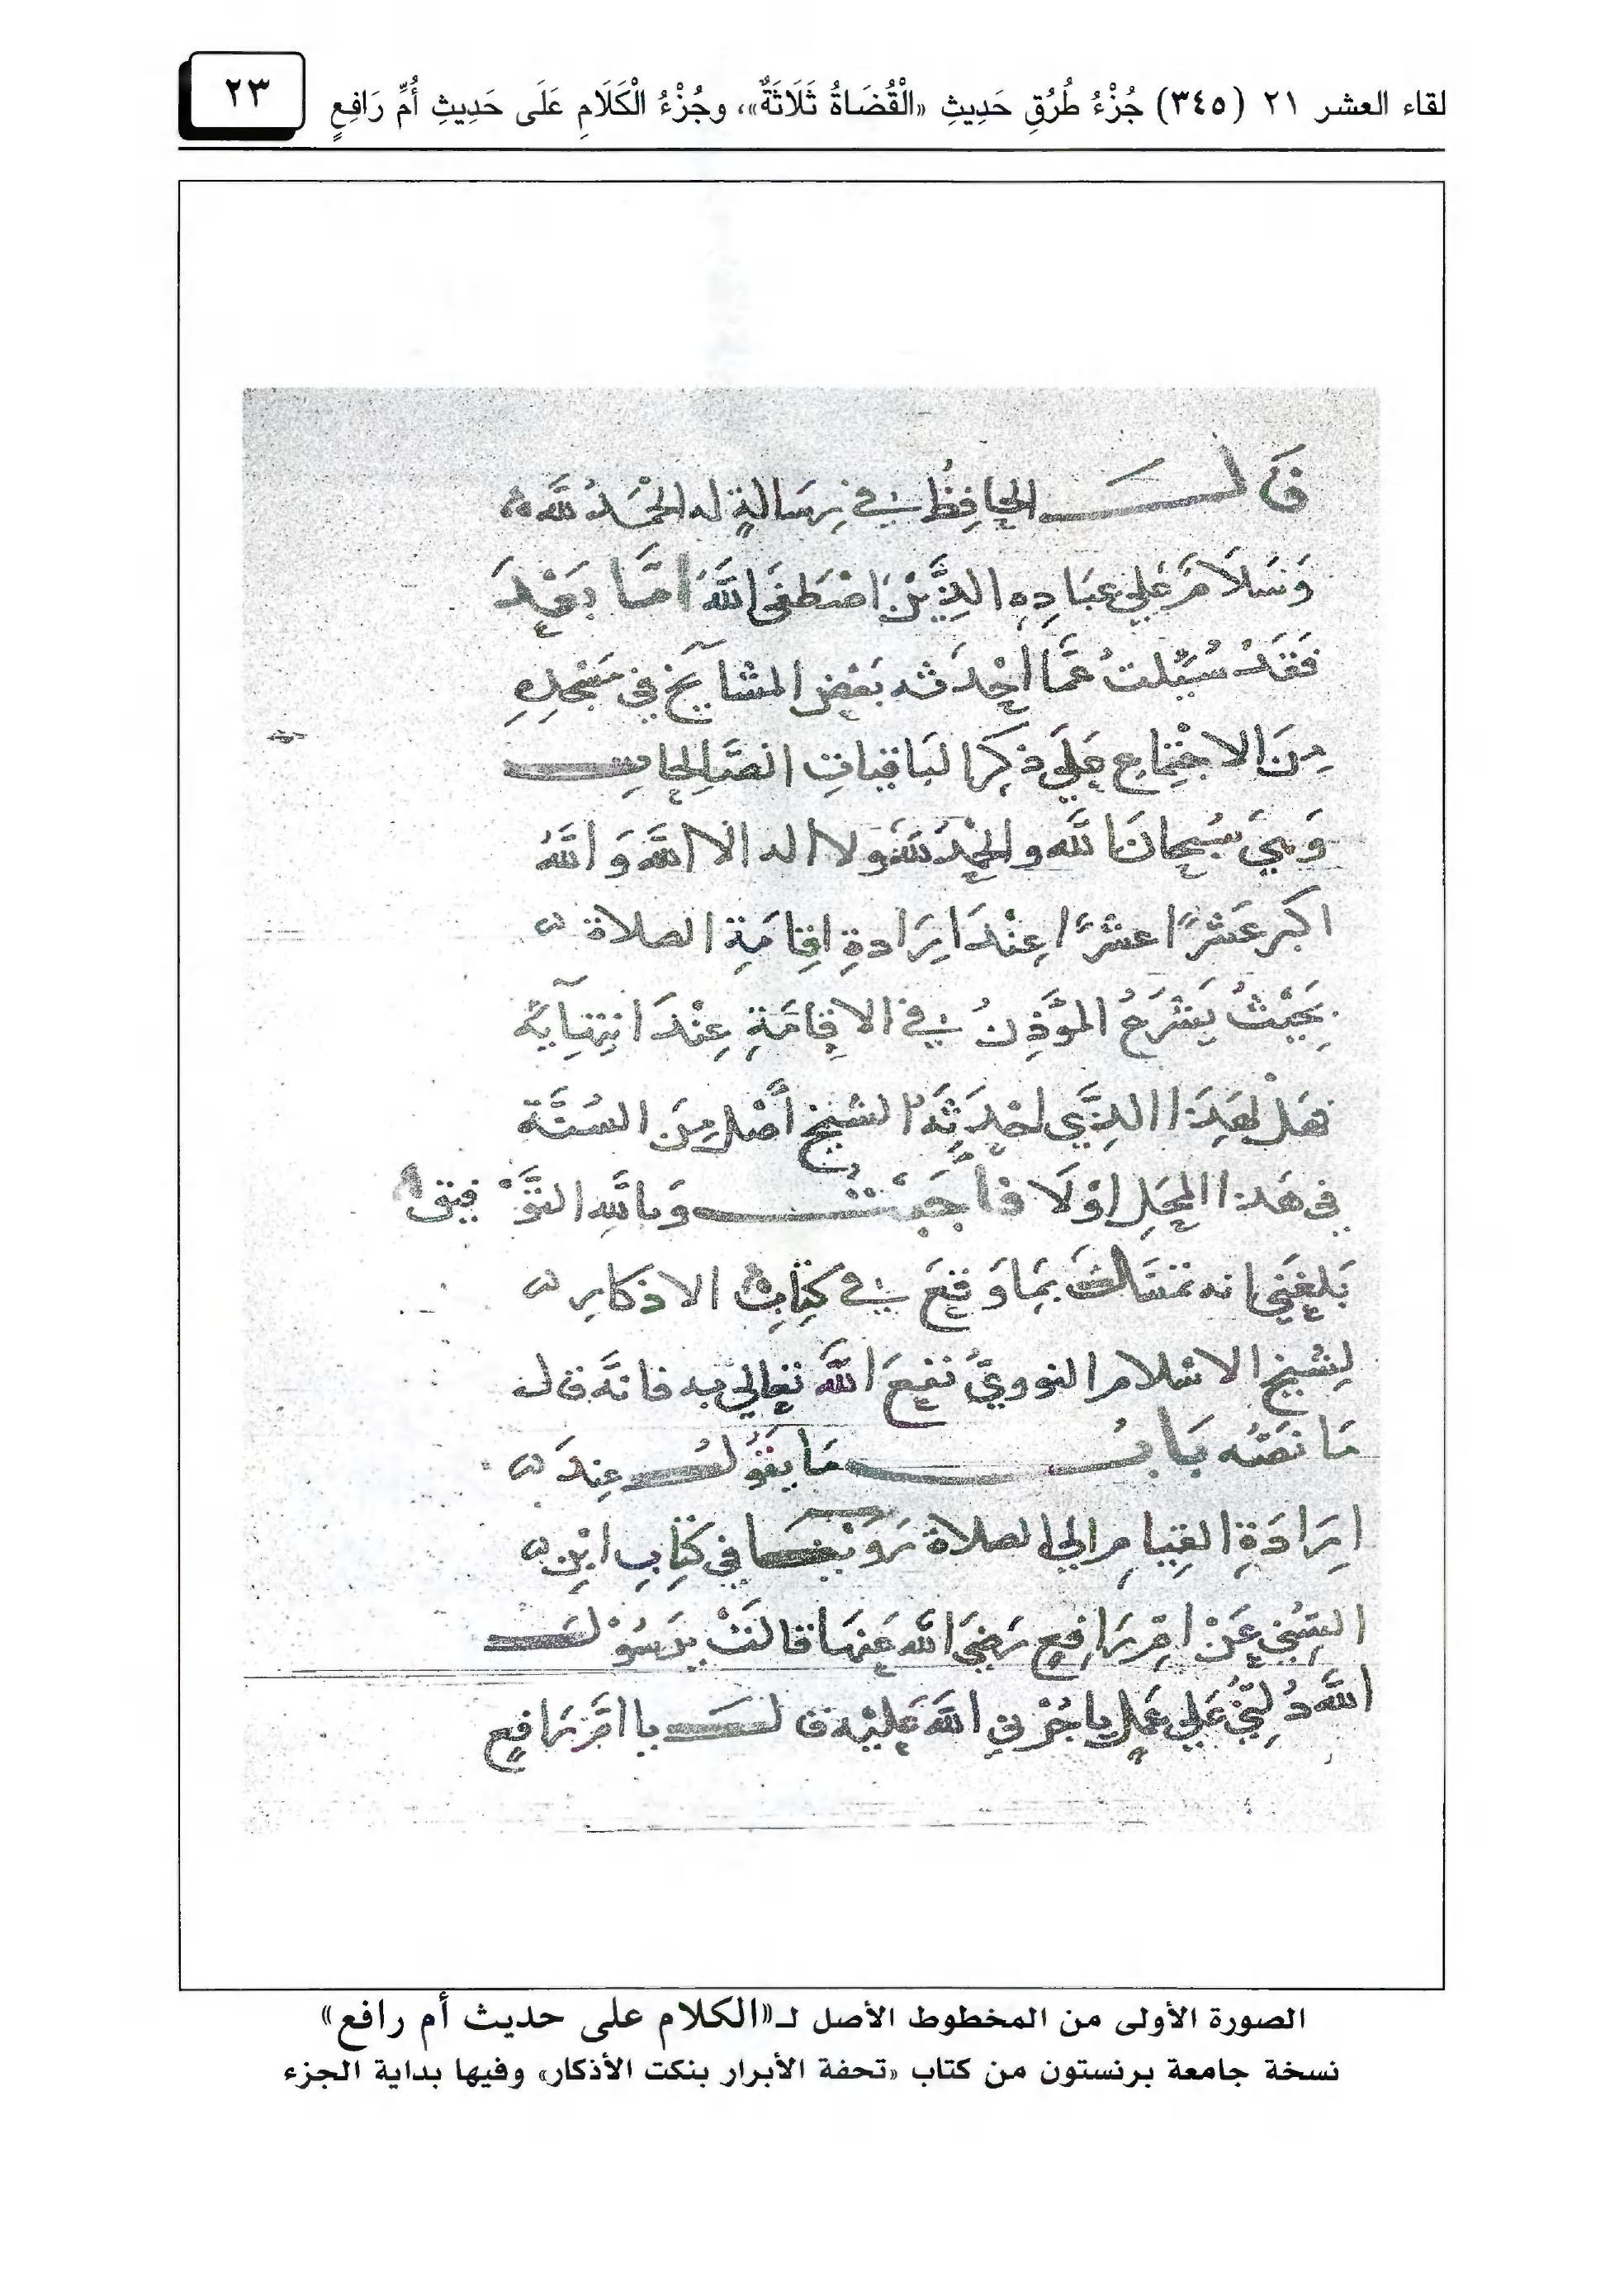 لقاء العشر ٢١ (٣٤٥) جُزْءُ طُرُقِ حَدِيثِ «الْقُضَاةُ ثَلَاثَةٌ»، وجُزْءُ الْكَلَامِ عَلَى حَدِيثِ أُمِّ رَافِعٍ
٢٣
قَالَ الحافِظُ في رِسَالةٍ له الحَمْدُ للهِ
وَسَلَامٌ عَلى عِبَادِهِ الذِّيْنَ اصْطَفَى اللهُ أمَّا بَعْدَ
فَقَدْ سُئِلتُ عَمَّا أحْدَثه بَعْضُ المشايخ في مَسْجِدِهِ
مِنَ الاجْتِمَاعِ عَلَى ذكرِ البَاقياتِ الصَّالحاتِ
وَهِيَ سُبْحَانَ اللهِ والحَمْدُ للهِ وَلا اله الا اللهُ وَاللهُ
اكبر عَشْرًا عشْرًا عِنْدَ ارَادةِ اقِامَةِ الصلاة
بِحَيْثُ يَشْرَعُ المؤَذِنُ في الاقِامَةِ عِنْدَ انتِهَايهُ
هَلْ لِهَذَا الذِّي احْدَثَهُ الشيخ أصْل مِنَ السُنَّة
في هَذا المحَلِ اوْلَا فأجَبْتُ وَباللهِ التَّوْفيق
بَلَغَنِي انه تمسَّكَ بِمَا وَقعَ في كِتَابِ الاذكار
لِشيخِ الاسْلام النووِيُّ نفعَ اللهُ تعالى به فانَّهُ قال
مَا نصّه بَابُ مَا يقُولُ عِندَ
ارَادَةِ القِيامِ الى الصلاة رَوَيْنَا في كِتَابِ ابْنِ
السُنِّي عَنْ امِّ رَافِعٍ رَضِيَ الله عَنهَا قالتْ يرَسُوْلَ
اللهِ دُلنِي عَلى عَملٍ ياجُرْني اللهُ عَليْه قالَ يا امَّ رَافِعٍ
الصورة الأولى من المخطوط الأصل لـ«الكلام على حديث أم رافع»
نسخة جامعة برنستون من كتاب «تحفة الأبرار بنكت الأذكار» وفيها بداية الجزء